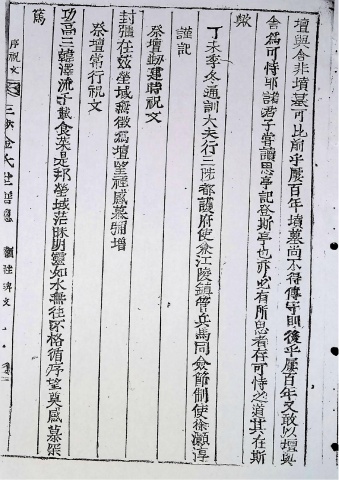 壇與舍非墳墓可比前乎屢百年墳墓尚不得傳守則後乎屢百年又敢以壇與
舍爲可恃耶諸君子嘗讀思亭記登斯亭也亦必有所思者存可恃之道其在斯
歟
丁未季冬通訓大夫行三陟都護府使兼江陵鎭管兵馬同僉節制使徐灝淳
謹記
祭壇刱建時祝文
封疆在玆塋域無徵爲壇望祀感慕彌增
祭壇常行祝文
功高三韓澤流千載食采是邦塋域茫昧明靈如水無往不格循序望奠感慕深
篤
序祝文
三陟金氏
碑文